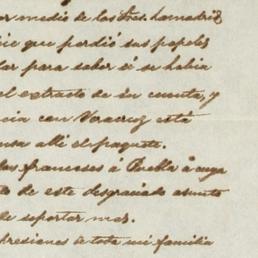 por medio de los Sres. Lamadrid
que perdió sus papeles
lar para saber si se habia
el extracto de su cuenta, y
cia con Veracruz está
ensa allí el paquete.
los franceses á Puebla á cuya
to de este desgraciado asunto
de soportar mas.
presiones de toda mi familia